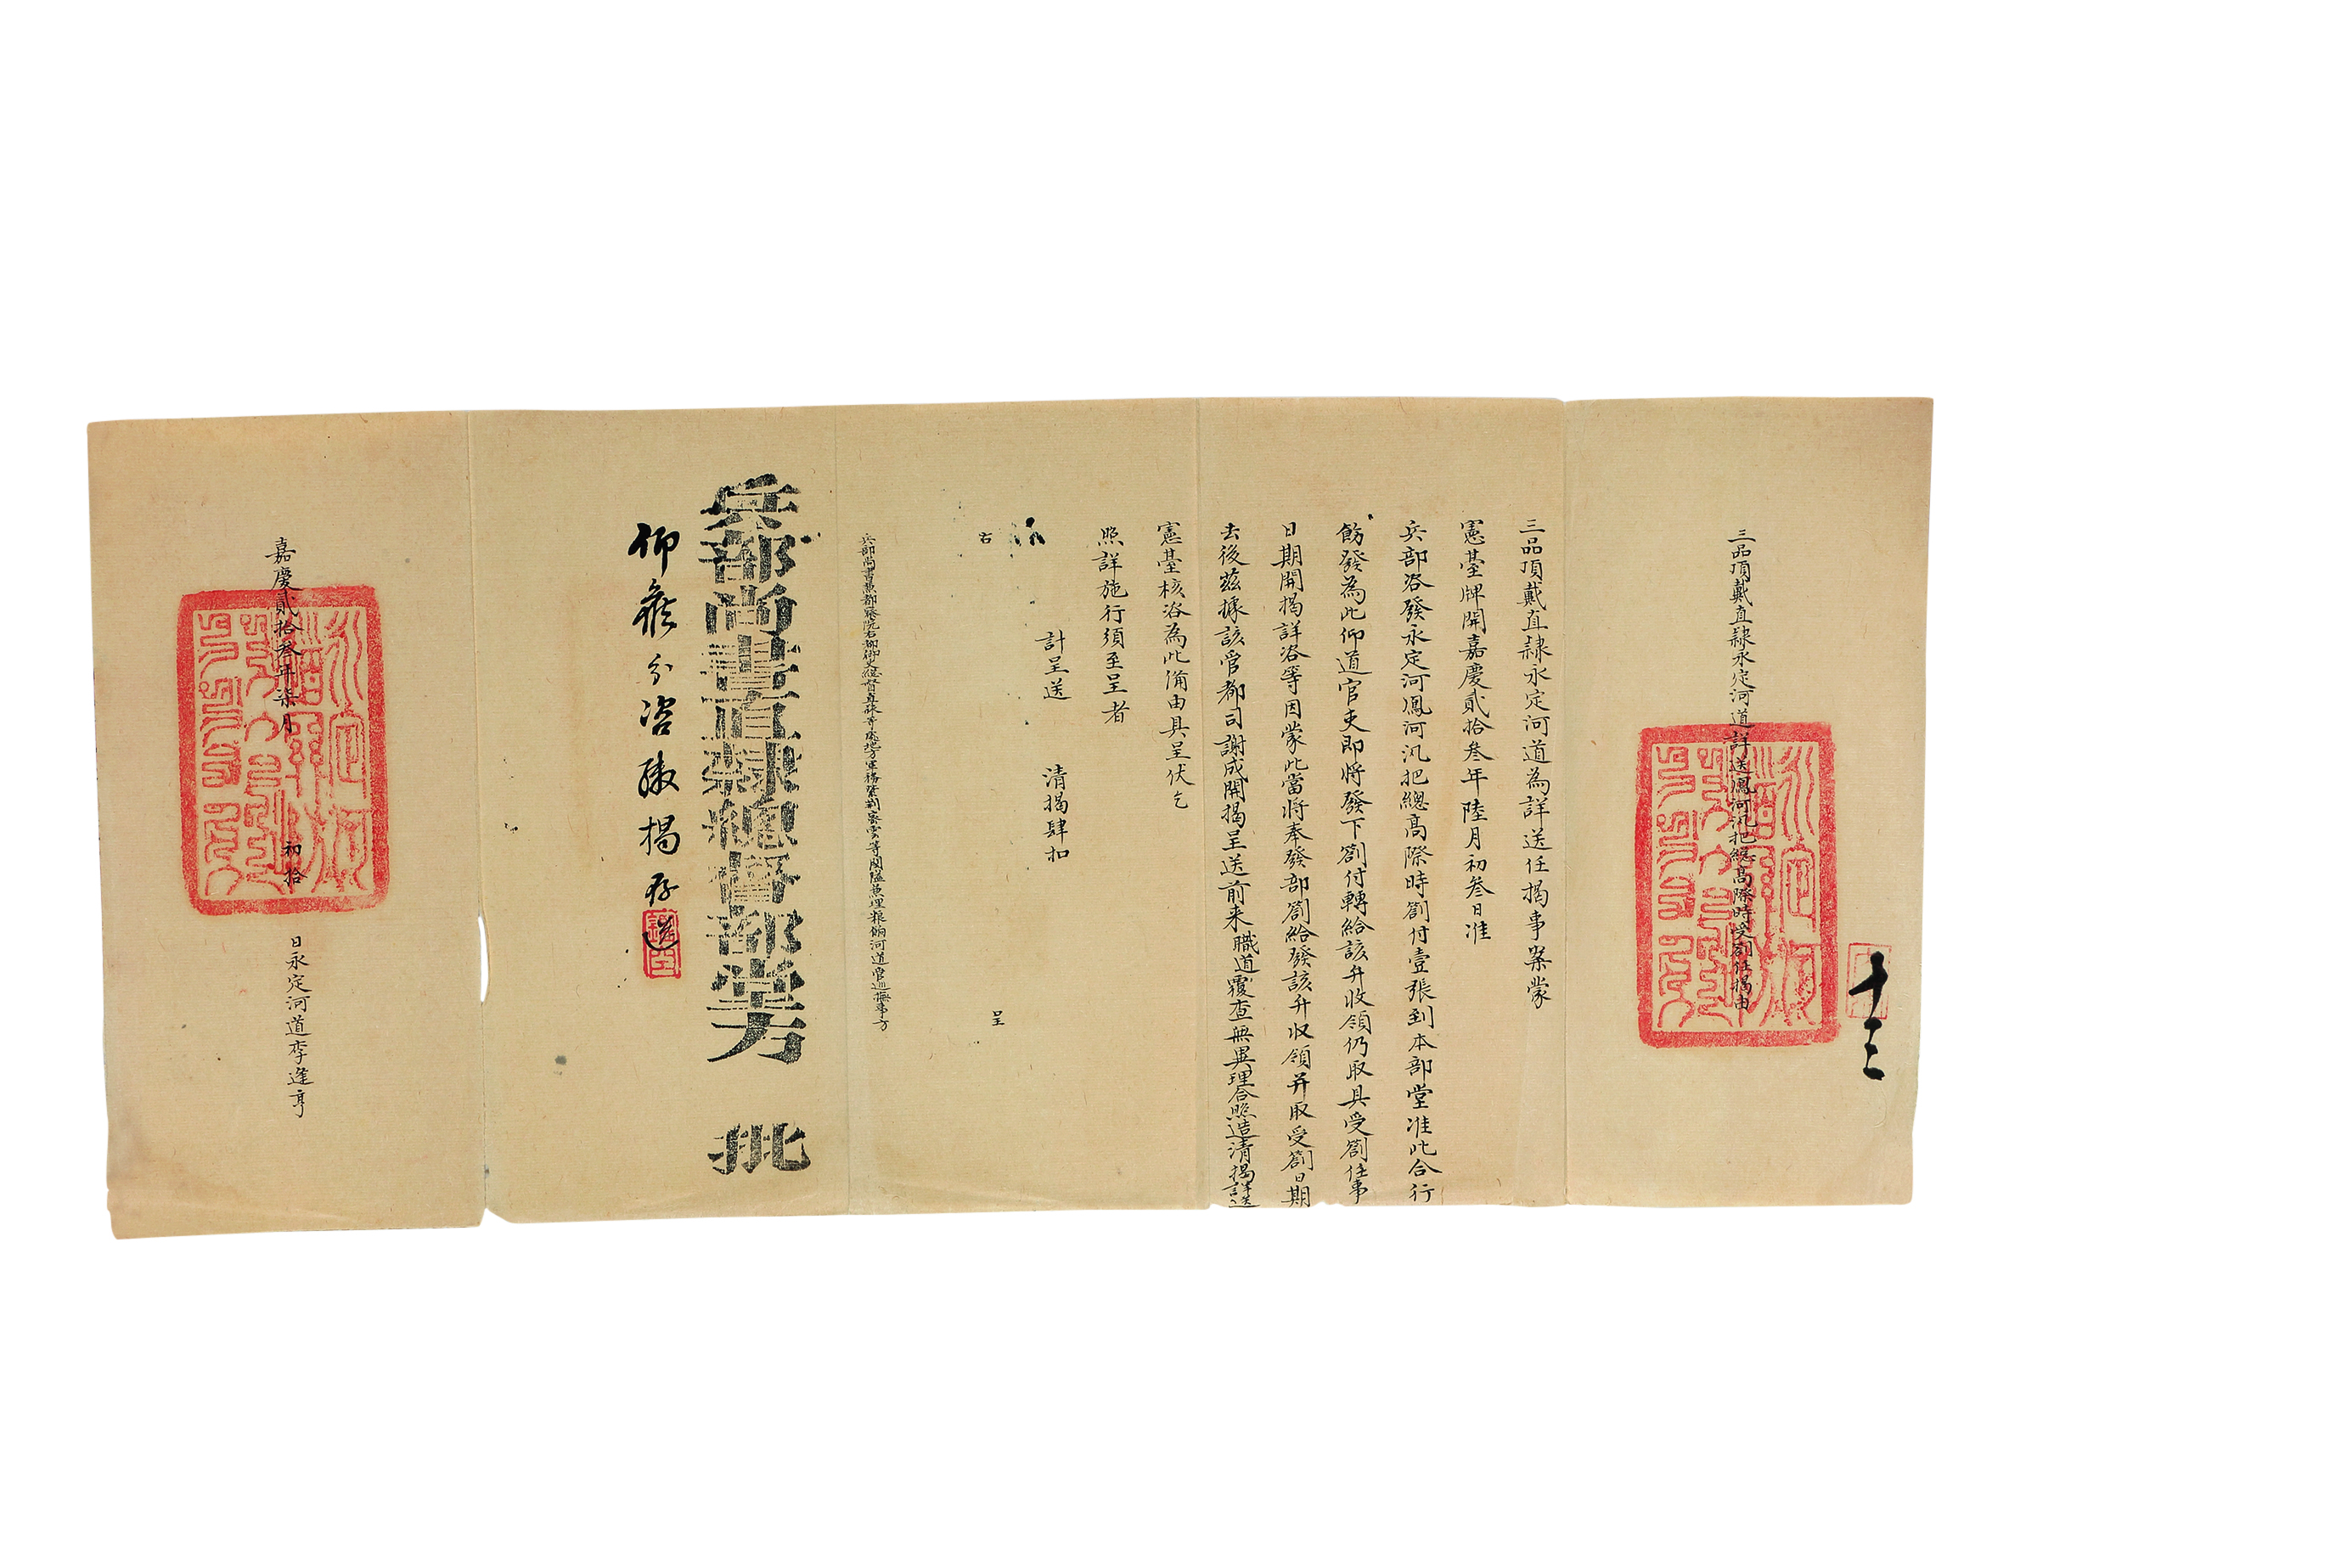 三品頂戴直隸永定河道詳送鳳河汛把總高際時受劄任揭由
十三
三品頂戴直隸永定河道為詳送任揭事案蒙
憲臺牌開嘉慶貳拾叁年陸月初叁日准
兵部咨發永定河鳳河汛把總高際時劄付壹張到本部堂准此合行
飭發為此仰道官吏即將發下劄付轉給該弁收領仍取具受劄任事
日期開揭詳咨等因蒙此當將奉發部劄給發該弁收領并取受劄日期
去後茲據該管都司謝成開揭呈送前来職道覆查無異理合照造清揭詳送
憲臺核咨為此備由具呈伏乞
照詳施行須至呈者
計呈送
清揭肆扣
右
呈
兵部尚書兼都察院右都御史總督直隸等處地方軍務紫荊密雲等關隘兼理糧餉河道管巡撫事方
兵部尚書直隸總督部堂方 批
仰候分咨繳揭存
嘉慶貳拾叁年柒月初拾日永定河道李逢亨